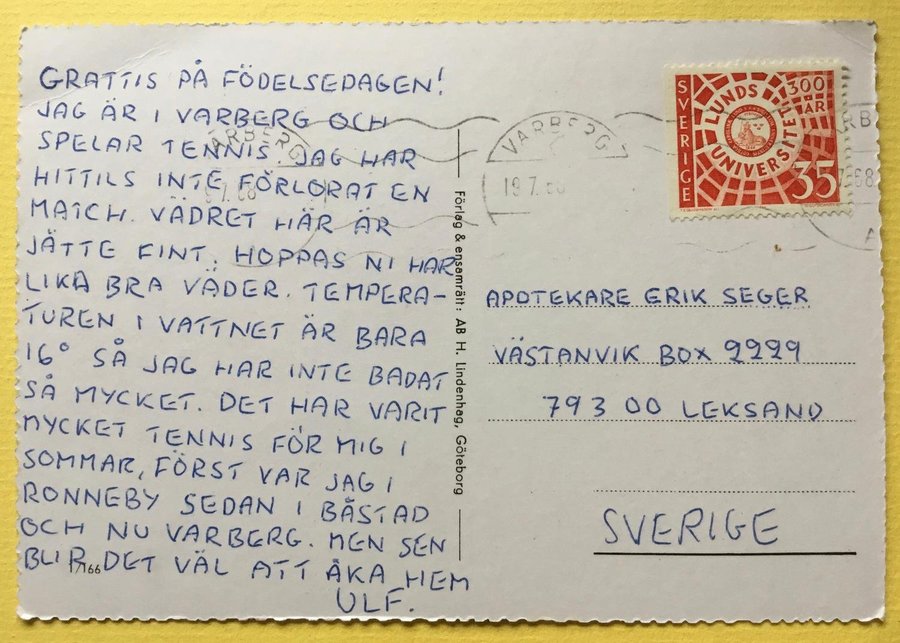 GRATTIS PÅ FÖDELSEDAGEN!
JAG ÄR I VARBERG OCH
SPELAR TENNIS. JAG HAR
HITTILS INTE FÖRLORAT EN
MATCH. VÄDRET HÄR ÄR
JÄTTE FINT. HOPPAS NI HAR
LIKA BRA VÄDER. TEMPERA-
TUREN I VATTNET ÄR BARA
16° SÅ JAG HAR INTE BADAT
SÅ MYCKET. DET HAR VARIT
MYCKET TENNIS FÖR MIG I
SOMMAR, FÖRST VAR JAG I
RONNEBY SEDAN I BÅSTAD
OCH NU VARBERG. MEN SEN
BLIR DET VÄL ATT ÅKA HEM
ULF.
Förlag & ensamrätt: AB H. Lindenhag, Göteborg
VARBERG
VARBERG
19.7.68
SVERIGE
LUNDS
UNIVERSITET
300
ÅR
35
APOTEKARE ERIK SEGER
VÄSTANVIK BOX 2229
793 00 LEKSAND
SVERIGE